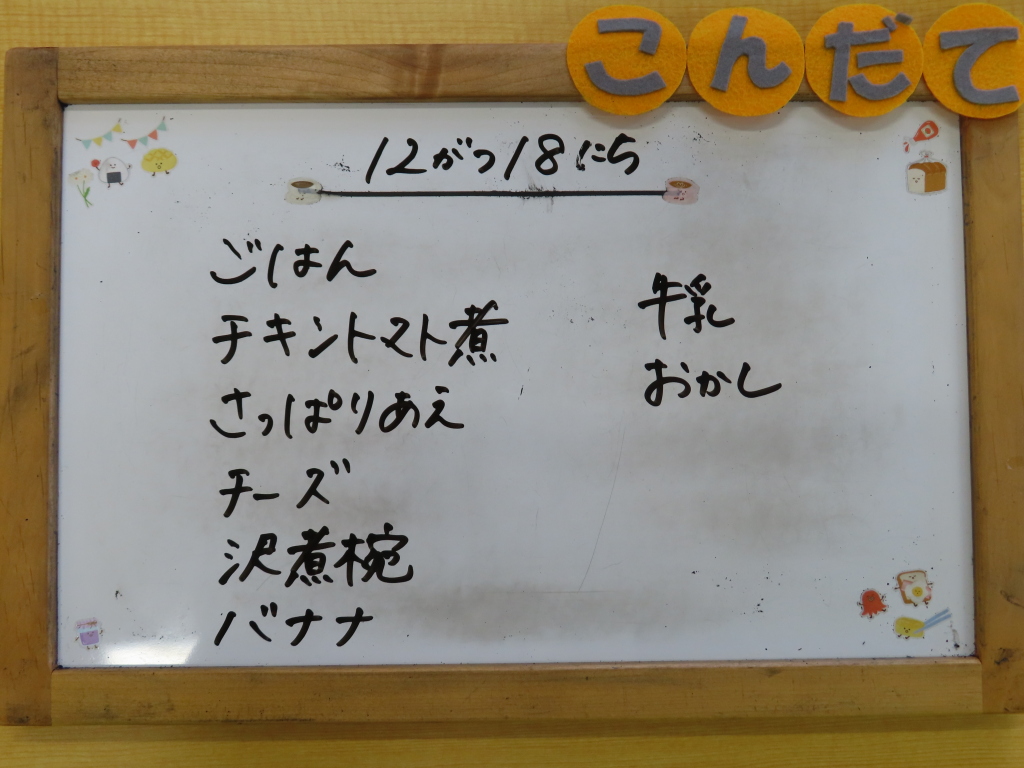 こんだて
12がつ18にち
ごはん
チキントマト煮
さっぱりあえ
チーズ
沢煮椀
バナナ
牛乳
おかし